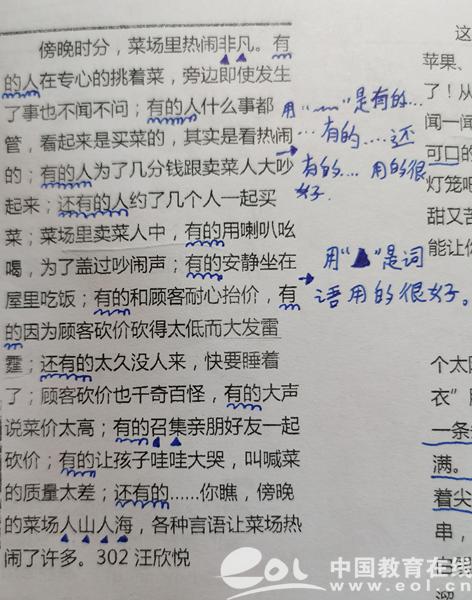 傍晚时分，菜场里热闹非凡。有
的人在专心的挑着菜，旁边即使发生
了事也不闻不问；有的人什么事都
管，看起来是买菜的，其实是看热闹
的；有的人为了几分钱跟卖菜人大吵
起来；还有的人约了几个人一起买
菜；菜场里卖菜人中，有的用喇叭吆
喝，为了盖过吵闹声；有的安静坐在
屋里吃饭；有的和顾客耐心抬价，有
的因为顾客砍价砍得太低而大发雷
霆；还有的太久没人来，快要睡着
了；顾客砍价也千奇百怪，有的大声
说菜价太高；有的召集亲朋好友一起
砍价；有的让孩子哇哇大哭，叫喊菜
的质量太差；还有的……你瞧，傍晚
的菜场人山人海，各种言语让菜场热
闹了许多。302 汪欣悦
用“﹏”是有的…
…有的….还
有的… 用的很
好。
用“▲”是词
语用的很好。
这
苹果、
了！从
闻一闻
可口的
灯笼吧
甜又苦
能让你
个太阳
衣”
一条
满。
着尖
串，
白线
eol 中国教育在线
www.eol.cn